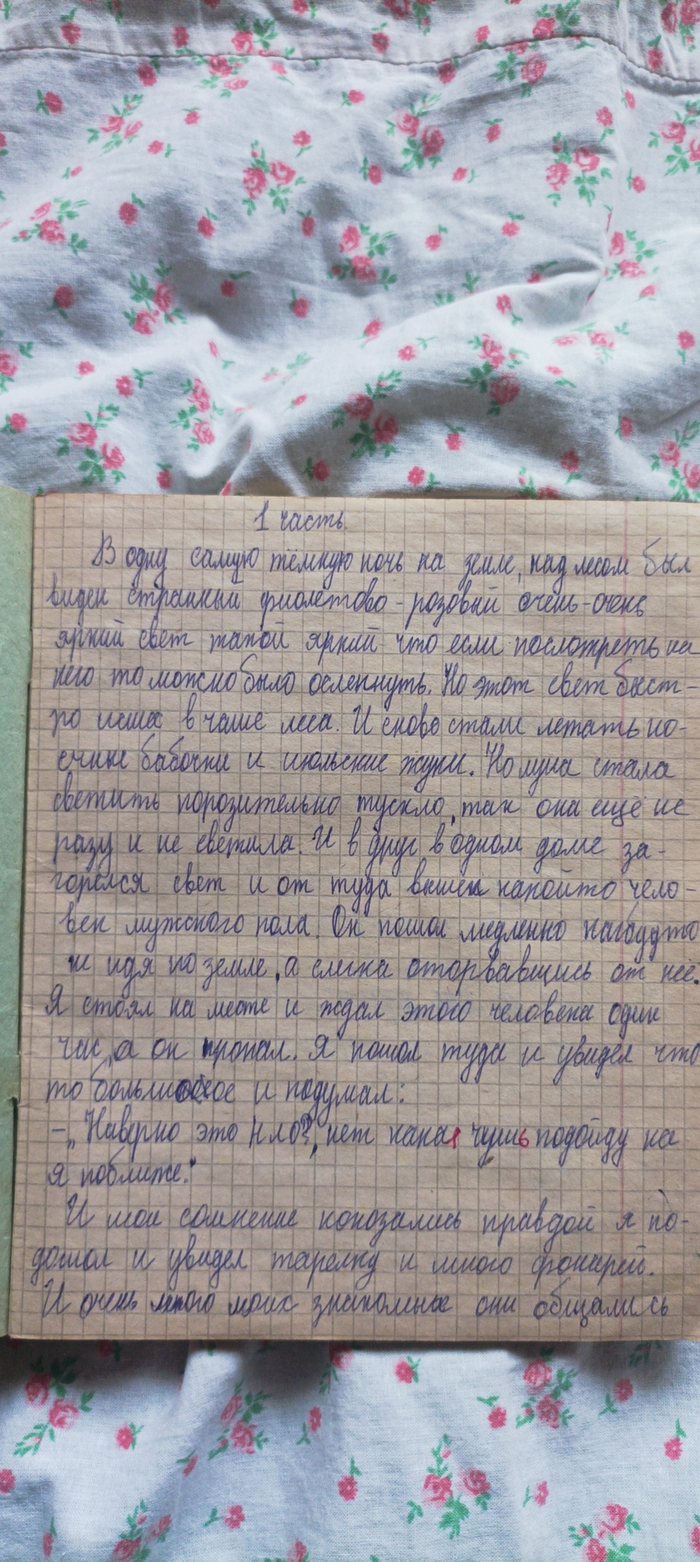 1 часть
В одну самую тёмную ночь на земле, над лесом был
виден странный фиолетово-розовый очень-очень
яркий свет такой яркий что если посмотреть на
него то можно было ослепнуть. Но этот свет быст-
ро исчез в чаще леса. И сново стали летать но-
чные бабочки и июльские жуки. Но луна стала
светить порозительно тускло, так она ещё не
разу и не светила. И в друг в одном доме за-
горелся свет и от туда вышел какойто чело-
век мужского пола. Он пошол медленно какбудто
не идя по земле, а слегка оторвавшись от неё.
Я стоял на месте и ждал этого человека один
час, а он пропал. Я пошол туда и увидел что
то большое и подумал:
-„Наверно это нло?, нет какая чушь подойду ка
я поближе."
И мои сомнение копозались правдой я по-
дошол и увидел тарелку и много фонарей.
И очень много моих знакомых они общались